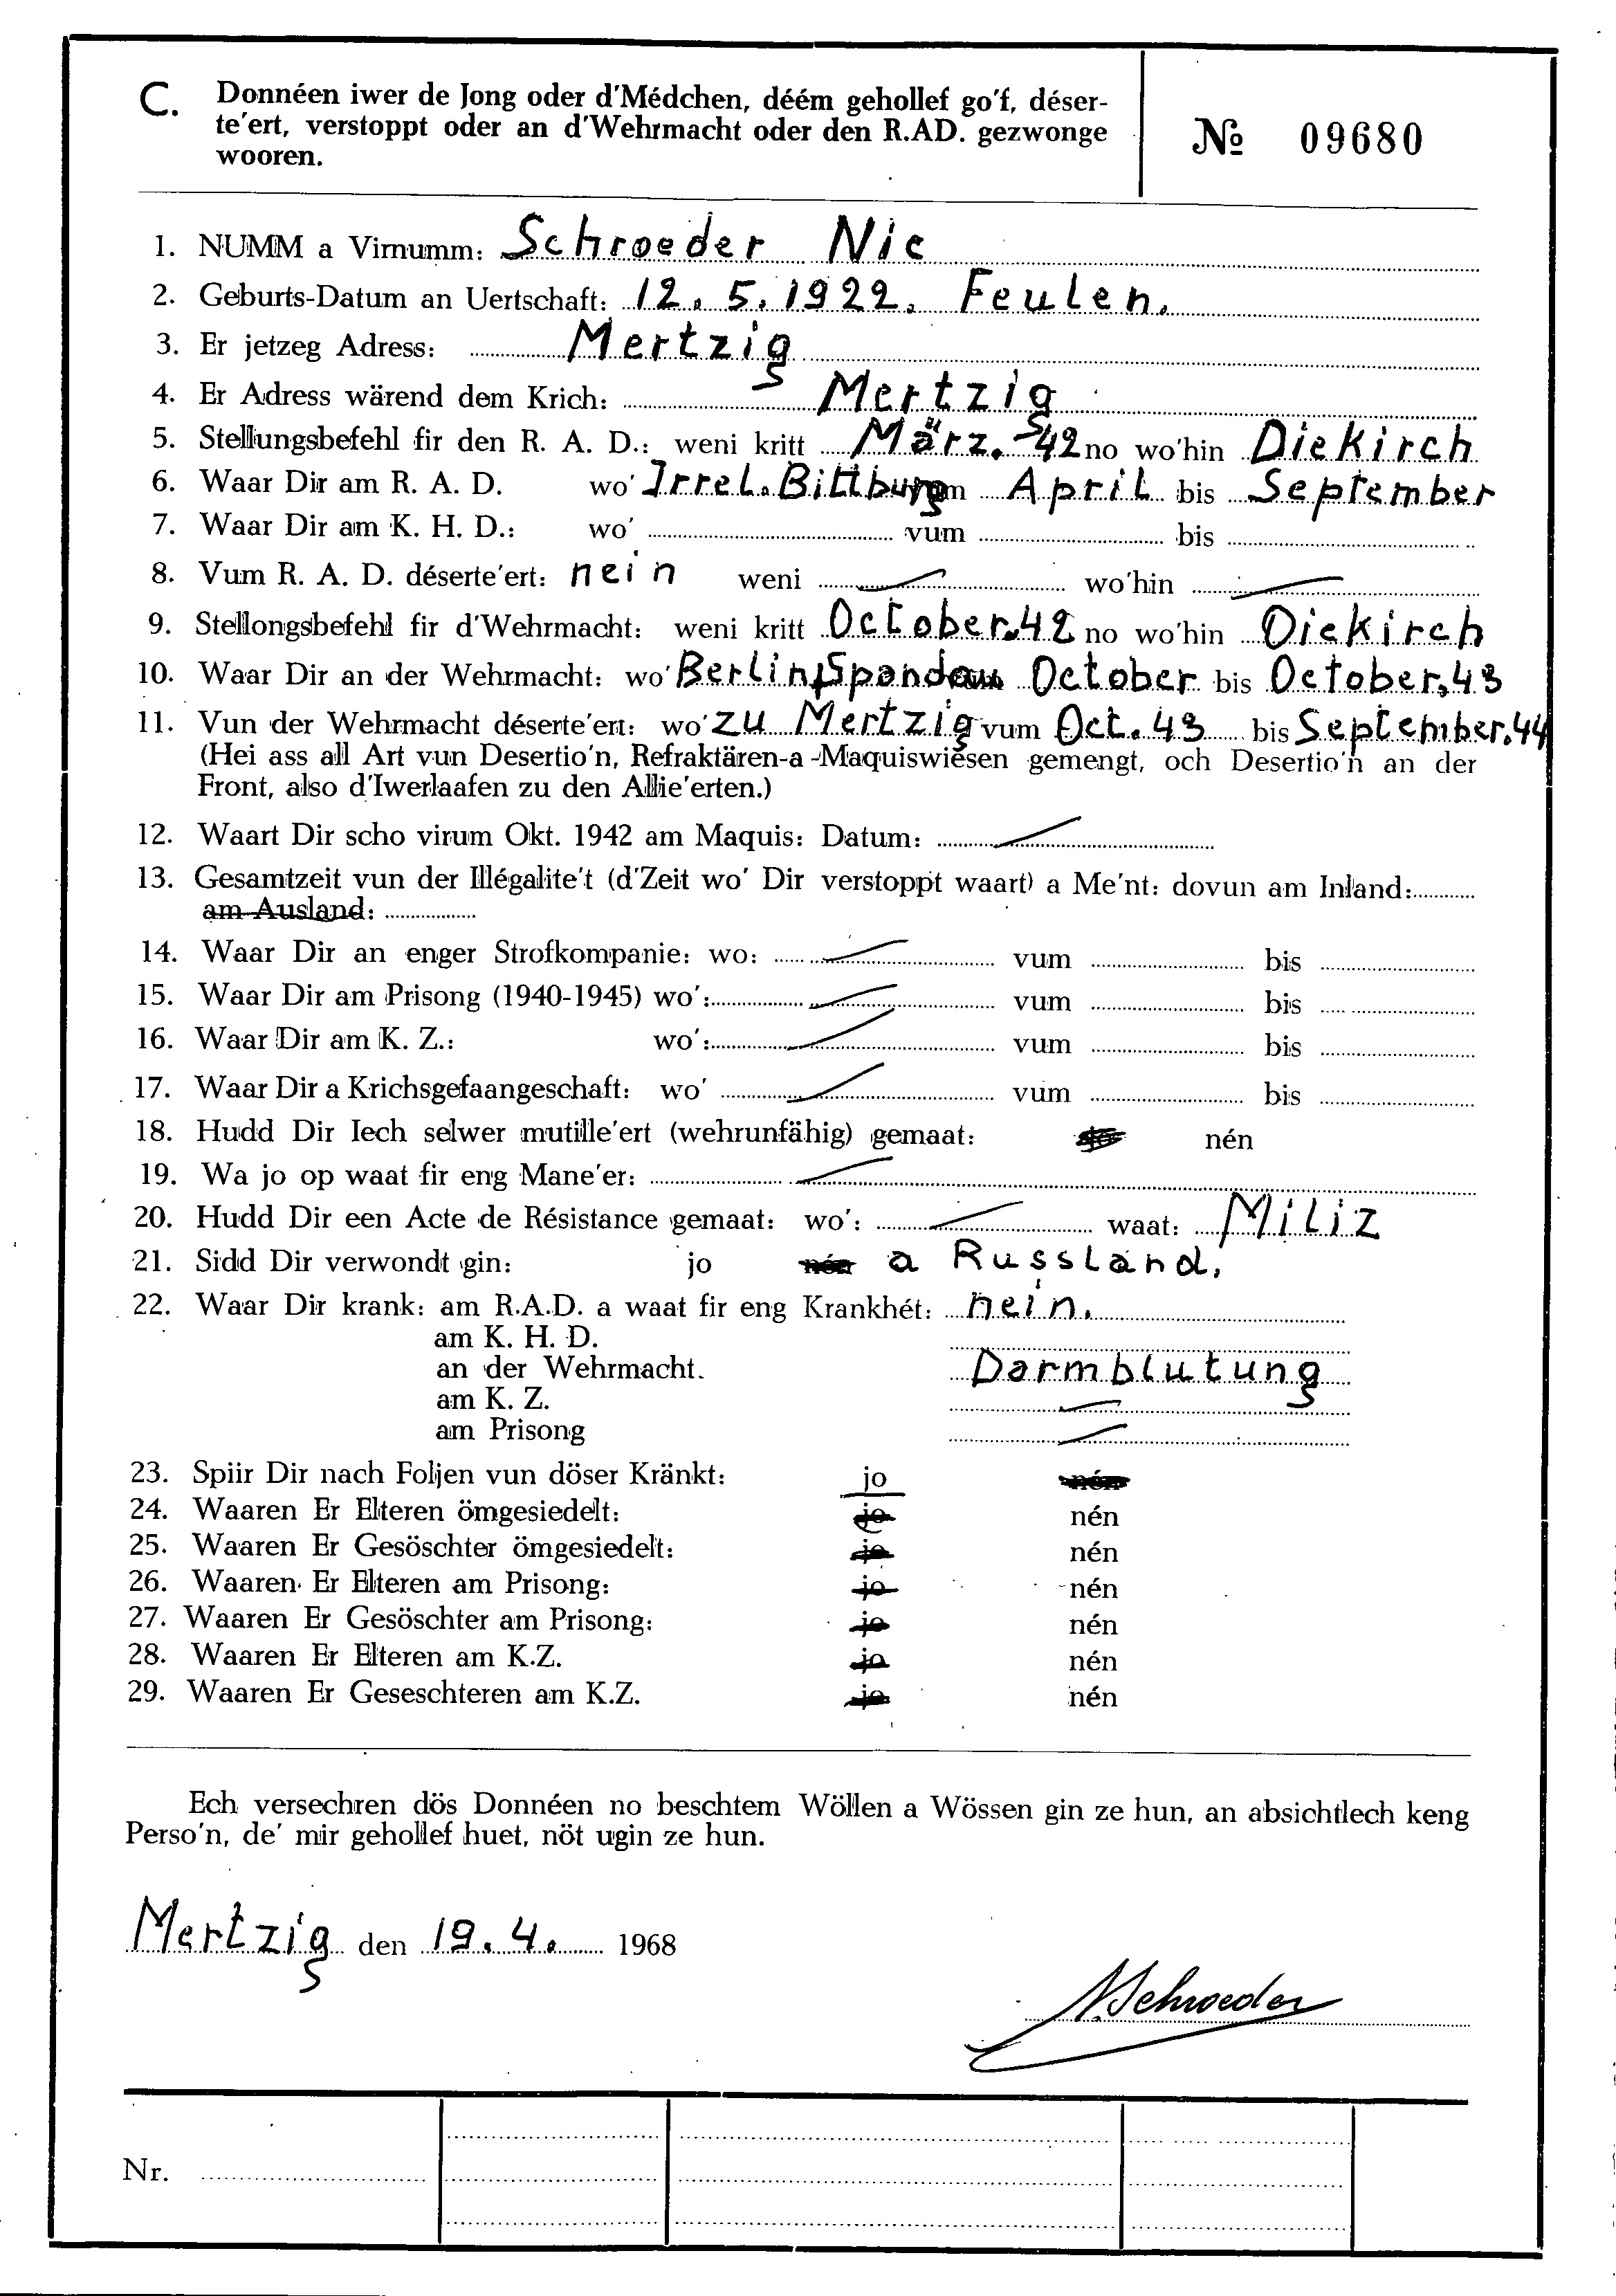 C. Donnéen iwer de Jong oder d'Médchen, déém gehollef go'f, déser-
te'ert, verstoppt oder an d'Wehrmacht oder den R.AD. gezwonge
wooren.
№ 09680
1. NUMM a Virnumm: Schroeder Nic
2. Geburts-Datum an Uertschaft: 12. 5. 1922. Feulen.
3. Er jetzeg Adress: Mertzig
4. Er Adress wärend dem Krich: Mertzig
5. Stellungsbefehl fir den R. A. D.: weni kritt März. 42 no wo'hin Diekirch
6. Waar Dir am R. A. D. wo' Irrel. Bittburg vum April bis September
7. Waar Dir am K. H. D.: wo' vum bis
8. Vum R. A. D. déserte'ert: nein weni wo'hin
9. Stellongsbefehl fir d'Wehrmacht: weni kritt October. 42 no wo'hin Diekirch
10. Waar Dir an der Wehrmacht: wo' Berlin Spandau October bis October. 43
11. Vun der Wehrmacht déserte'ert: wo' zu Mertzig vum Oct. 43 bis September. 44
(Hei ass all Art vun Desertio'n, Refraktären-a -Maquiswiesen gemengt, och Desertio'n an der
Front, also d'Iwerlaafen zu den Allie'erten.)
12. Waart Dir scho virum Okt. 1942 am Maquis: Datum:
13. Gesamtzeit vun der Illégalite't (d'Zeit wo' Dir verstoppt waart) a Me'nt: dovun am Inland:
am Ausland:
14. Waar Dir an enger Strofkompanie: wo: vum bis
15. Waar Dir am Prisong (1940-1945) wo': vum bis
16. Waar Dir am K. Z.: wo': vum bis
17. Waar Dir a Krichsgefaangeschaft: wo' vum bis
18. Hudd Dir Iech selwer mutille'ert (wehrunfähig) gemaat: jo nén
19. Wa jo op waat fir eng Mane'er:
20. Hudd Dir een Acte de Résistance gemaat: wo': waat: Miliz
21. Sidd Dir verwondt gin: jo nén a Russland.
22. Waar Dir krank: am R.A.D. a waat fir eng Krankhét: nein.
am K. H. D.
an der Wehrmacht. Darmblutung
am K. Z.
am Prisong
23. Spiir Dir nach Foljen vun döser Kränkt: jo nén
24. Waaren Er Elteren ömgesiedelt: jo nén
25. Waaren Er Gesöschter ömgesiedelt: jo nén
26. Waaren Er Elteren am Prisong: jo nén
27. Waaren Er Gesöschter am Prisong: jo nén
28. Waaren Er Elteren am K.Z. jo nén
29. Waaren Er Geseschteren am K.Z. jo nén
Ech versechren dös Donnéen no beschtem Wöllen a Wössen gin ze hun, an absichtlech keng
Perso'n, de' mir gehollef huet, nöt ugin ze hun.
Mertzig den 19. 4. 1968
N. Schroeder
Nr.